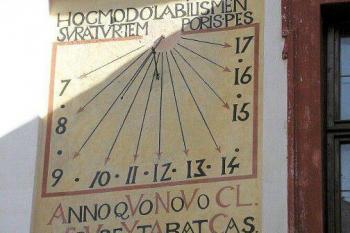 HOC MODO LABILIS MEN
SVRATVR TEMPORIS PES
7 17
· 16
8 · 15
9 · 10 · 11 · 12 · 13 · 14
ANNO QVO NOVO CL